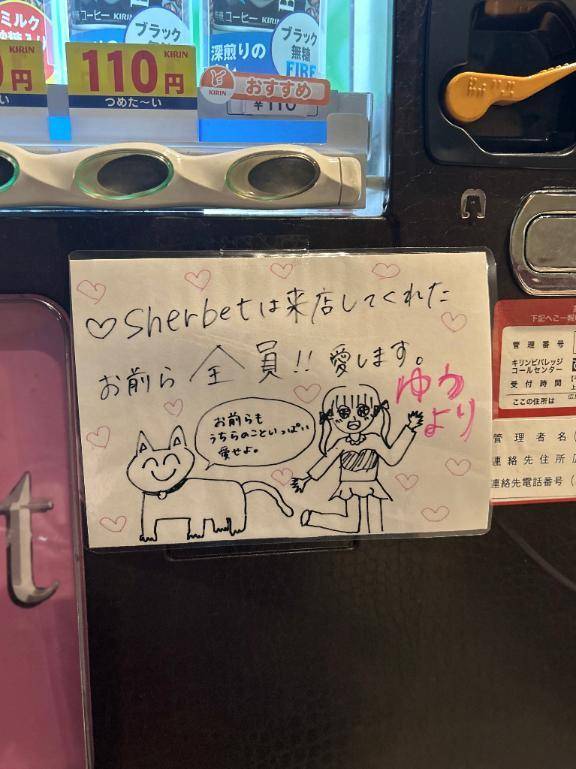 ミルク
KIRIN
円
い
コーヒー
ブラック
KIRIN
110円
つめた〜い
コーヒー KIRIN
ブラック
無糖
深煎りの
FIRE
KIRIN
おすすめ
♡Sherbetは来店してくれた
お前ら全員!!愛します。
ゆか
より
お前らも
うちらのこといっぱい
愛せよ。
t
管理番号
キリンビバレッジ
コールセンター
受付時間
ここの住所は
管理者名
連絡先住所
連絡先電話番号